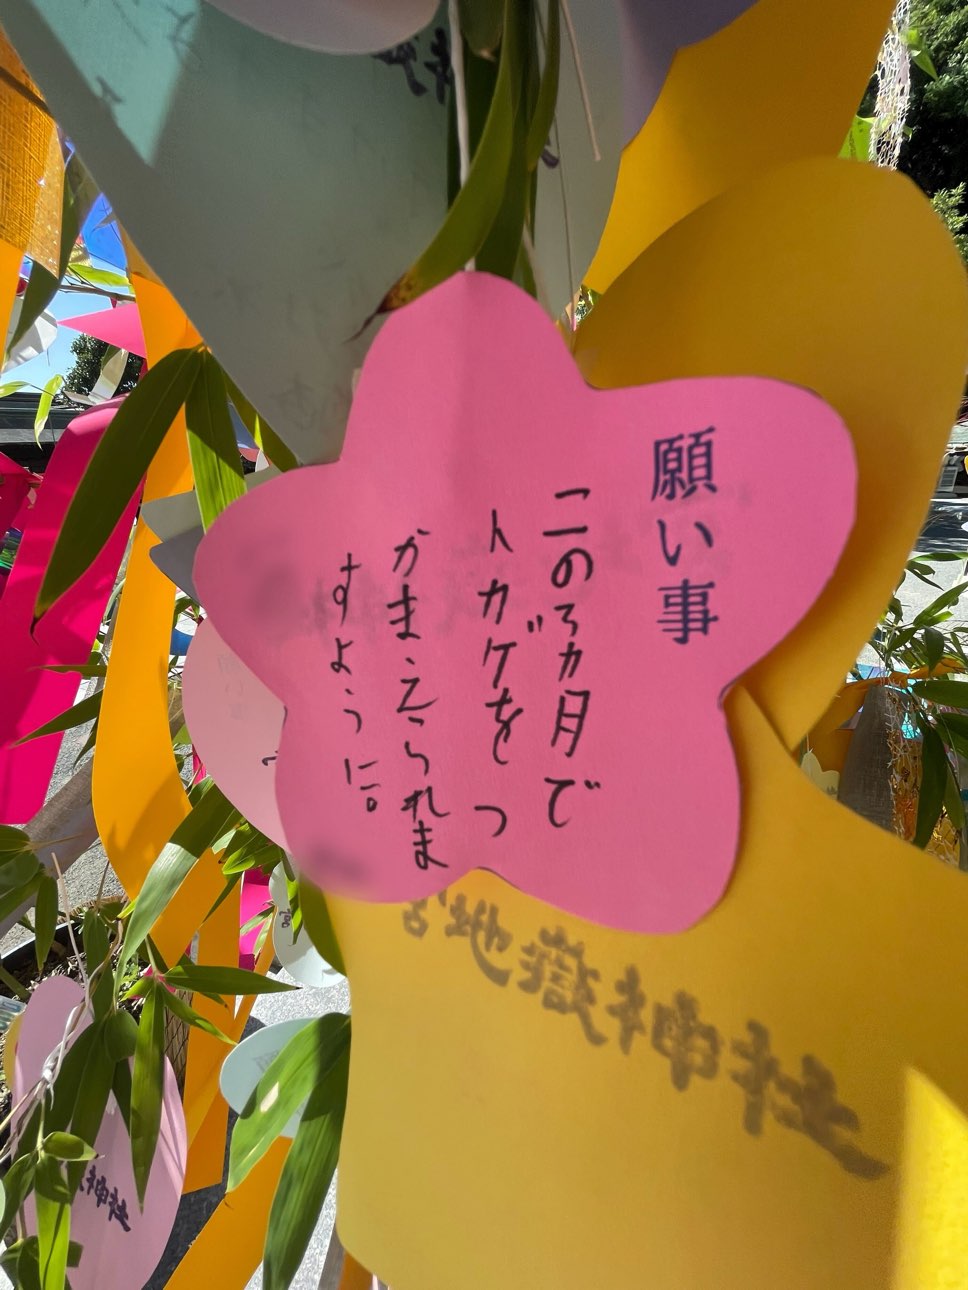 願い事
この3ヵ月で
トカゲをつ
かまえられま
すように。
宮地嶽神社
神社